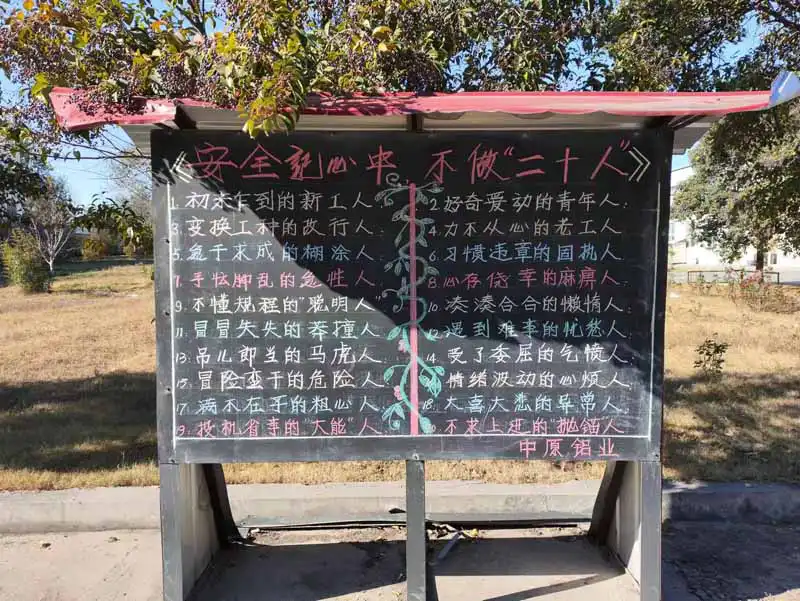 《安全记心中,不做"二十人"》
1. 初来乍到的新工人; 2. 好奇爱动的青年人;
3. 变换工种的改行人; 4. 力不从心的老工人;
5. 急于求成的糊涂人; 6. 习惯违章的固执人;
7. 手忙脚乱的急性人; 8. 心存侥幸的麻痹人;
9. 不懂规程的"聪明人" 10. 凑凑合合的懒惰人;
11. 冒冒失失的莽撞人; 12. 遇到难事的忧愁人;
13. 吊儿郎当的马虎人; 14. 受了委屈的气愤人;
15. 冒险蛮干的危险人; 情绪波动的心烦人;
17. 满不在乎的粗心人; 18. 大喜大悲的异常人;
19. 投机省事的"大能"人; 20. 不求上进的"抛锚人
中原铝业